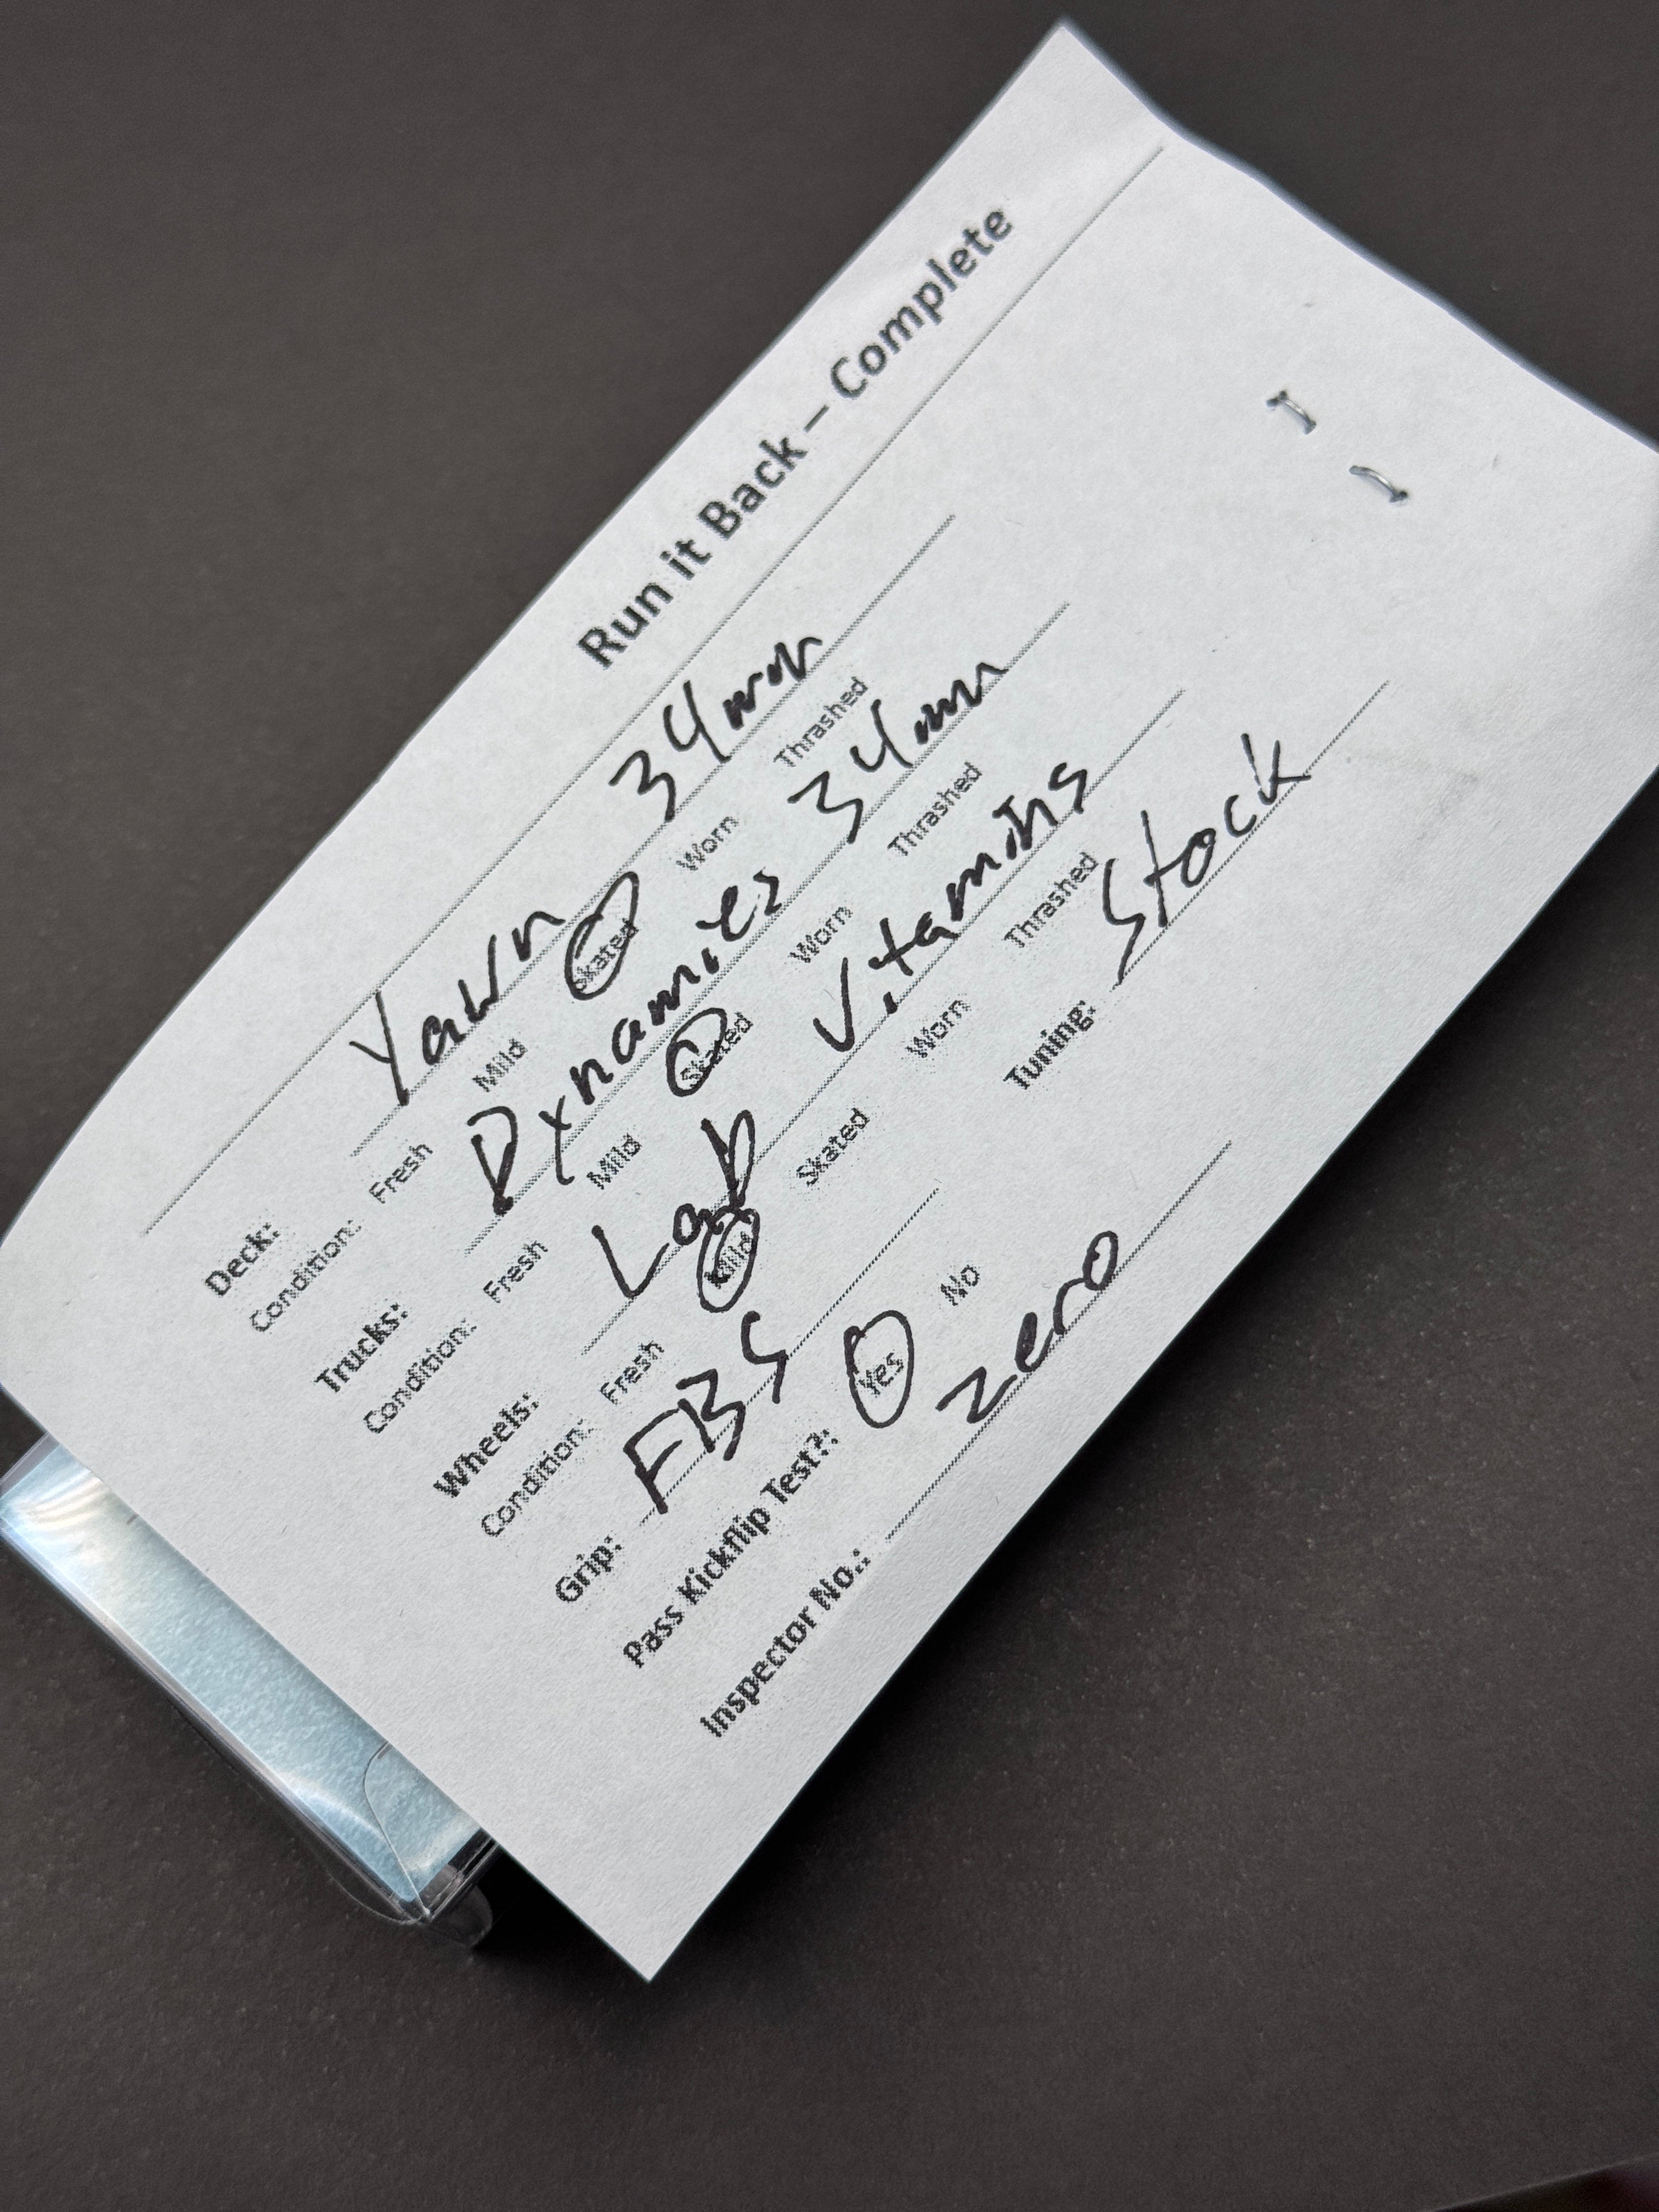 Run it Back – Complete
Deck: Yawn 34mm
Condition: Fresh Mild Skated Worn Thrashed
Trucks: Dynamies 34mm
Condition: Fresh Mild Skated Worn Thrashed
Wheels: Lab Vitamins
Condition: Fresh Mild Skated Worn Thrashed
Grip: FBS Tuning: Stock
Pass Kickflip Test?: Yes No
Inspector No.: zero